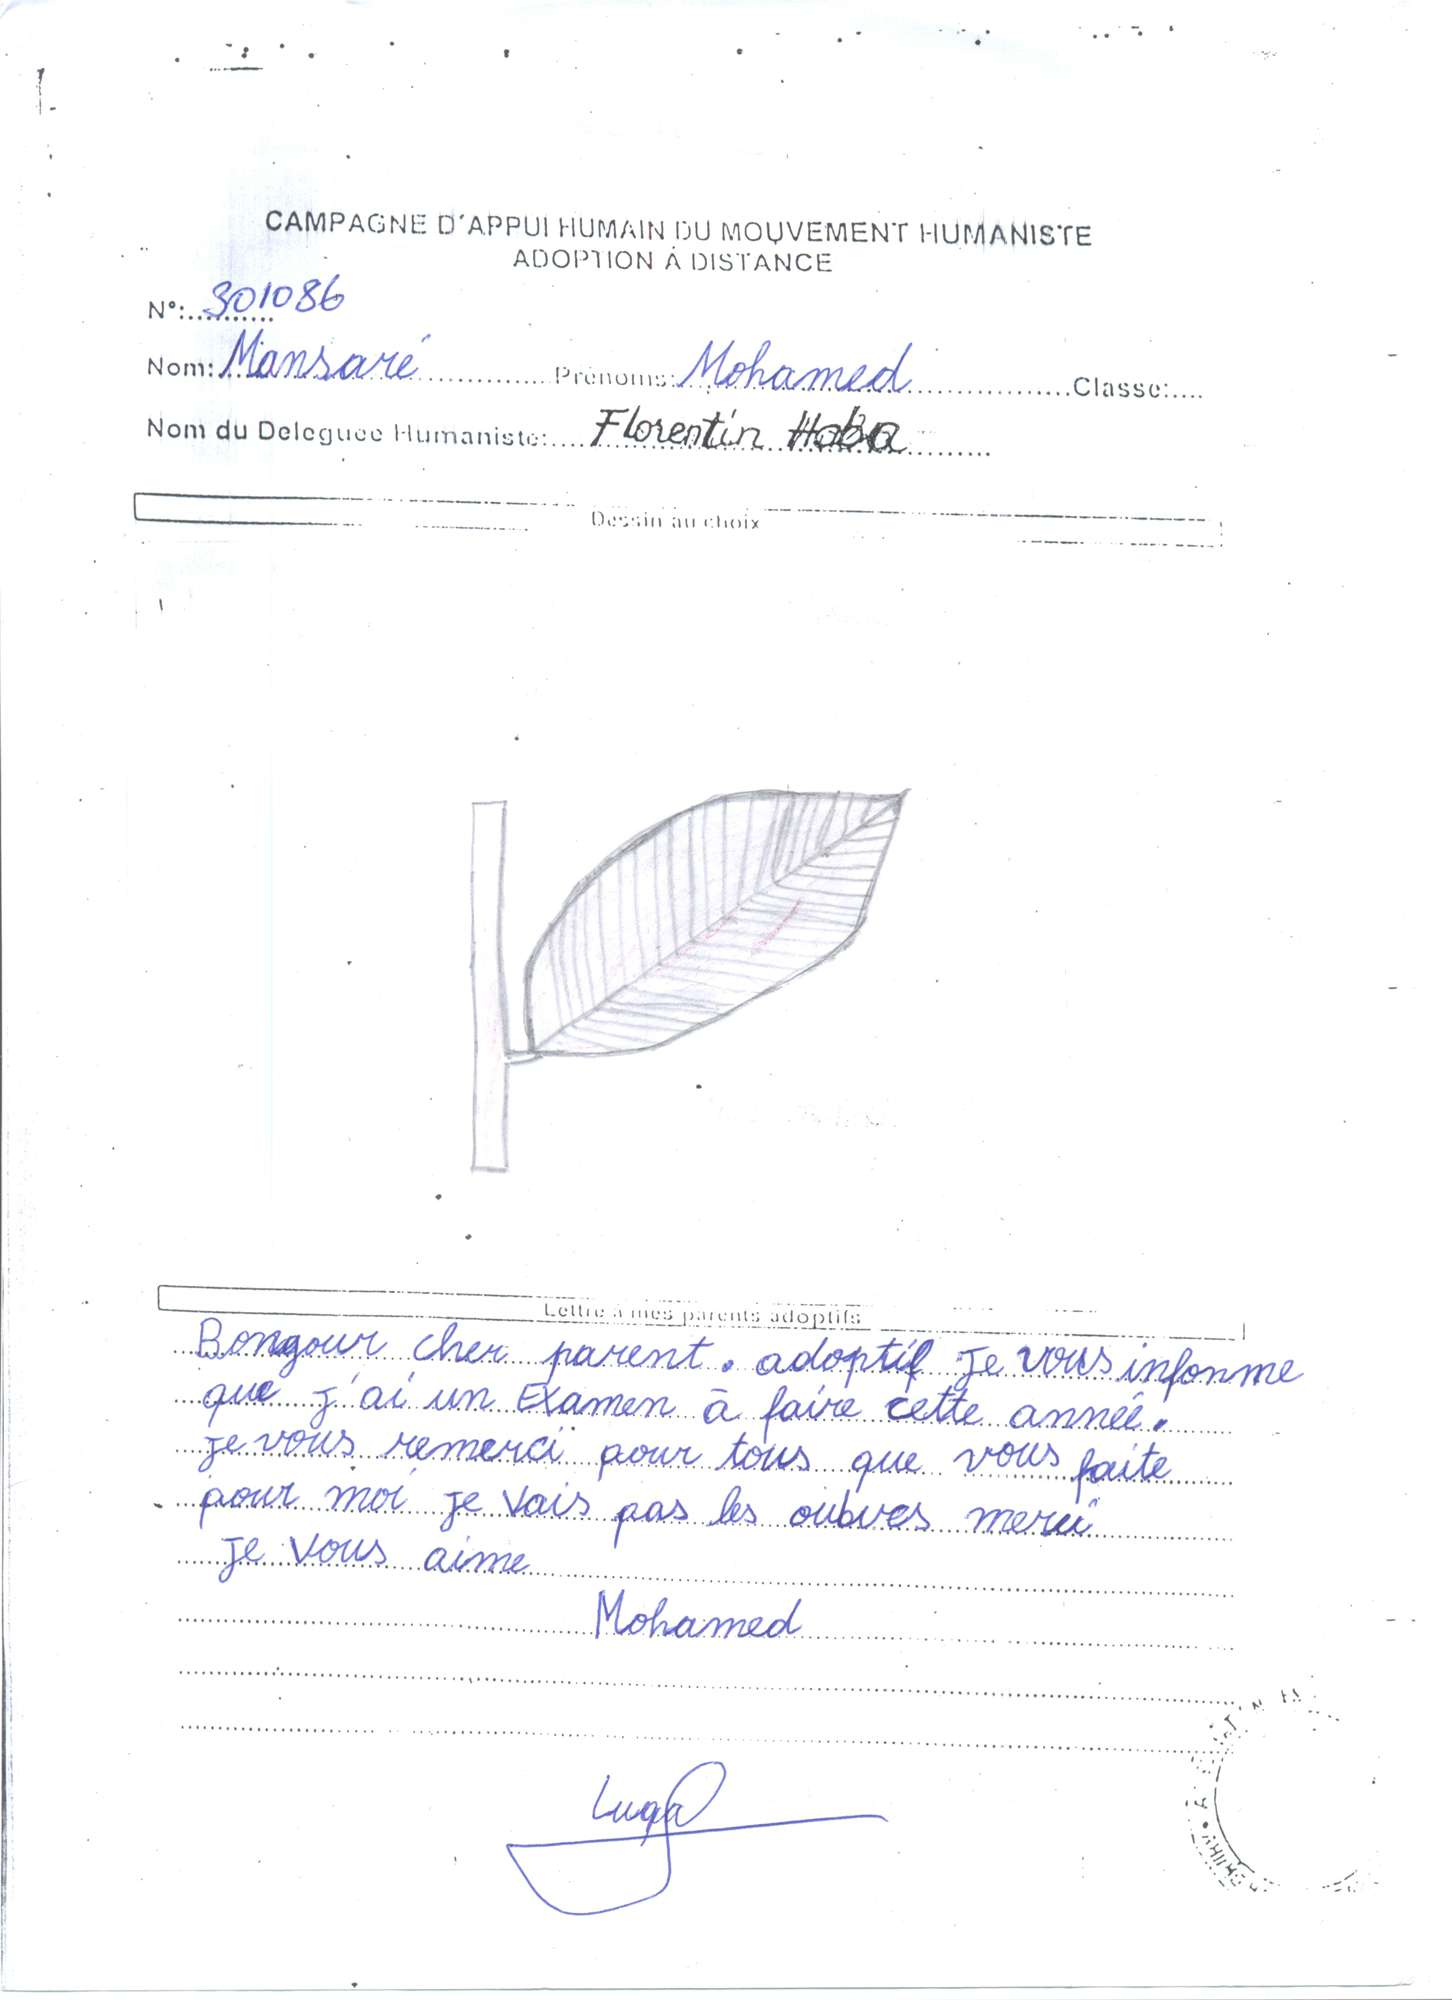 CAMPAGNE D'APPUI HUMAIN DU MOUVEMENT HUMANISTE
ADOPTION À DISTANCE
N°: 301086
Nom: Mansaré Prénoms: Mohamed Classe:
Nom du Deleguee Humaniste: Florentin Haba
Dessin au choix
Lettre à mes parents adoptifs
Bongour cher parent. adoptif je vous infonme
que j'ai un Examen à faire cette année.
je vous remerci pour tous que vous faite
pour moi je vais pas les oubves merci
je vous aime
Mohamed